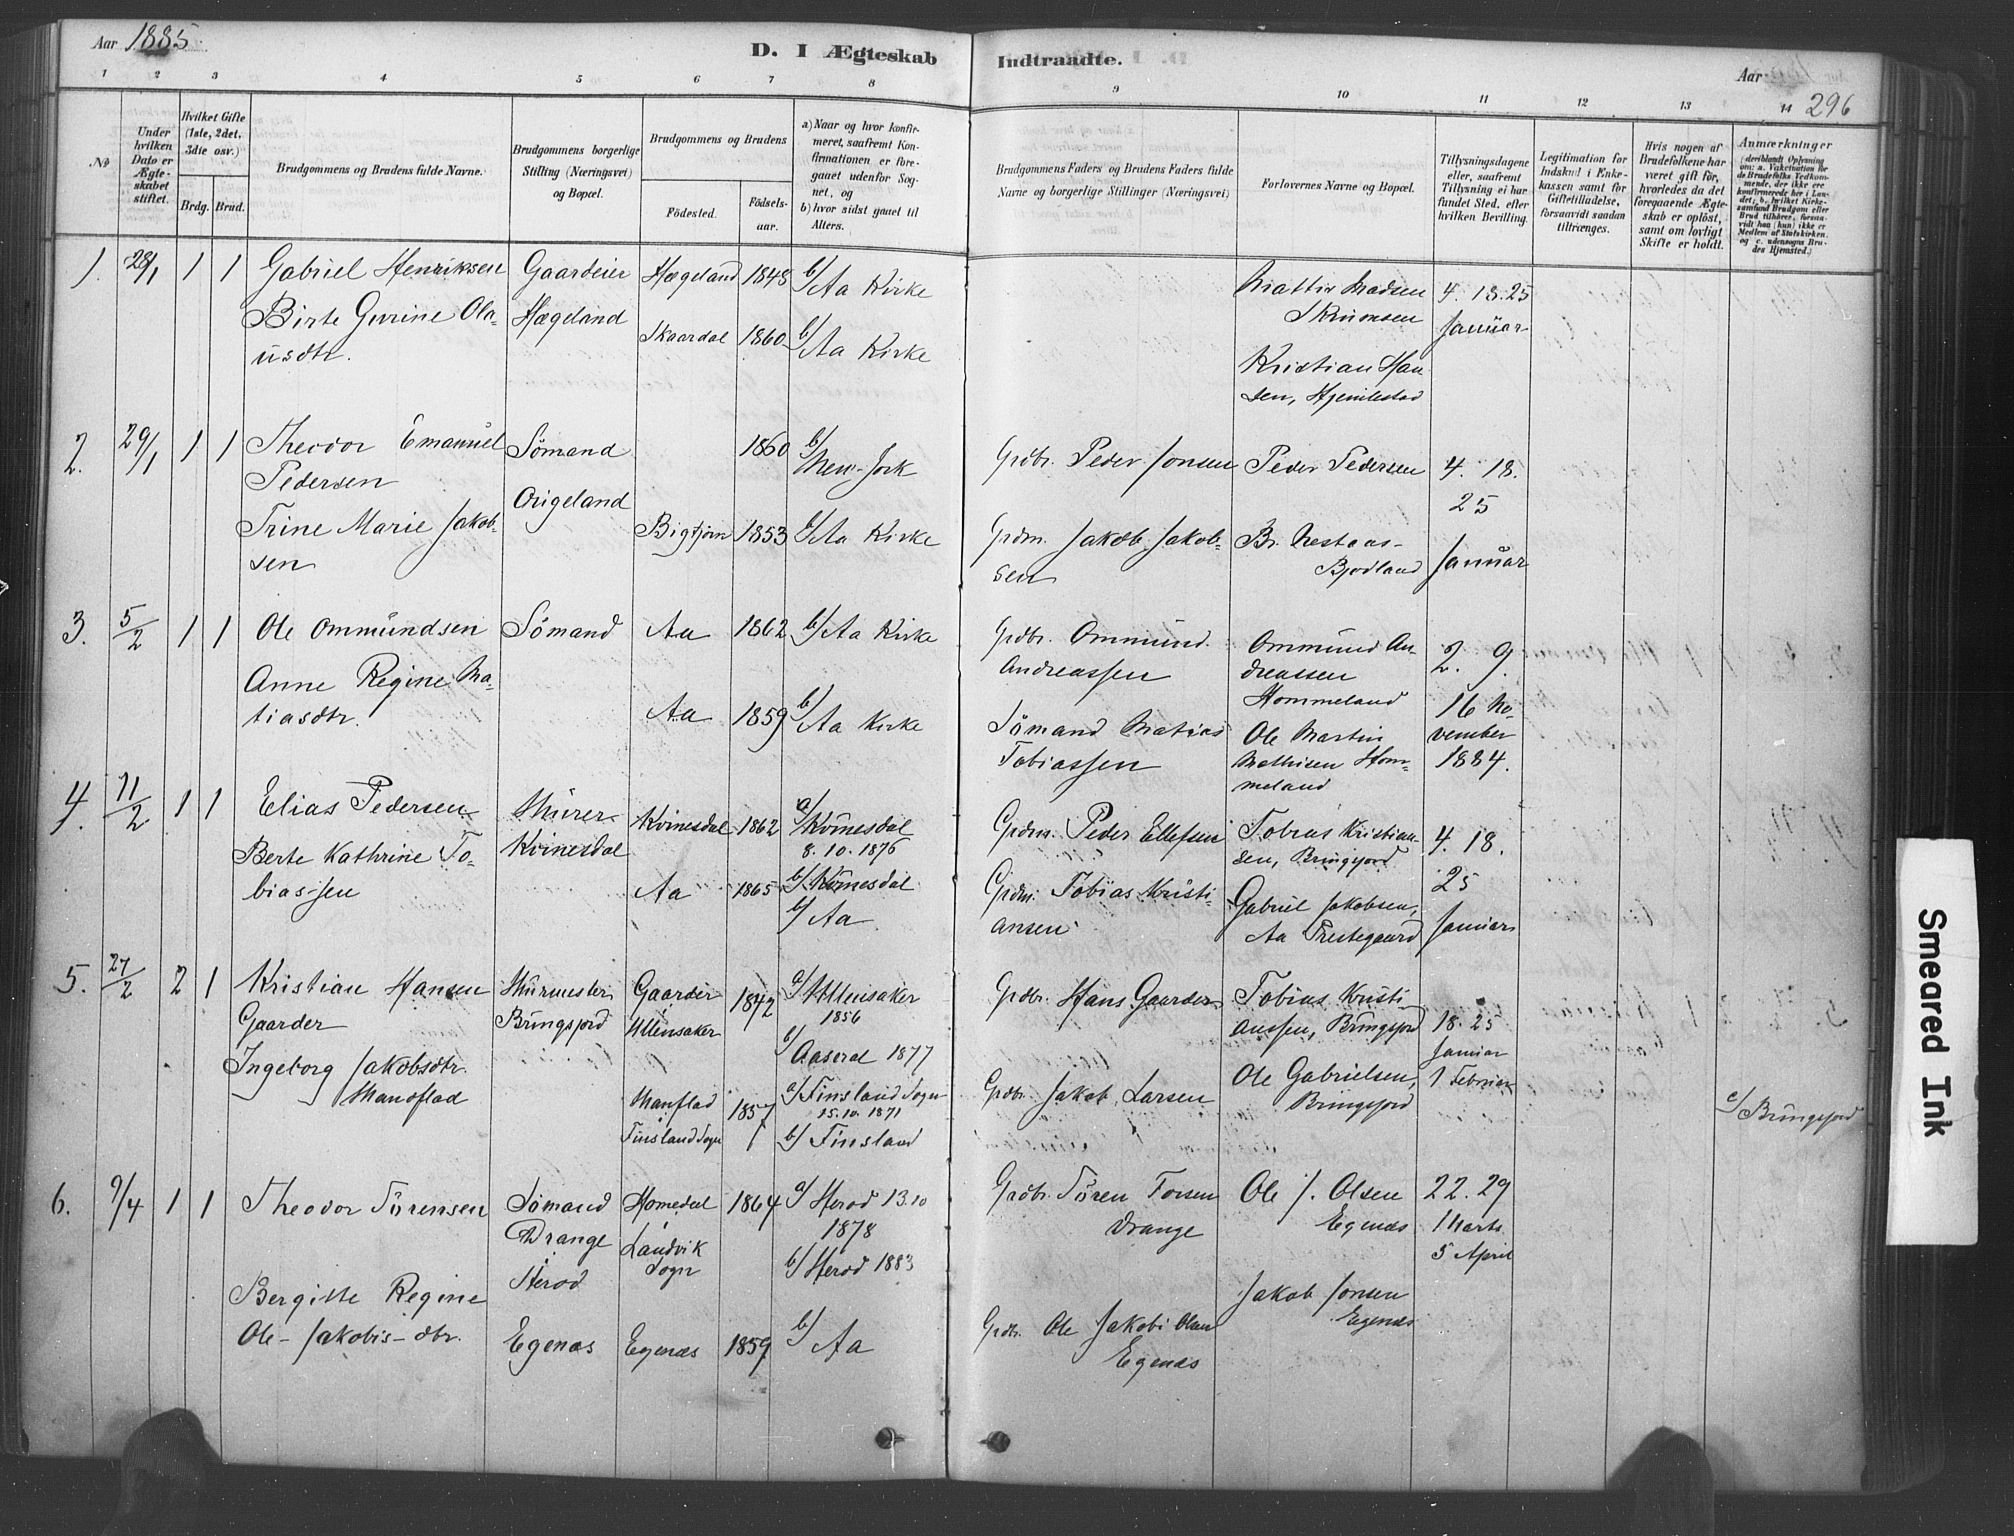 Aar 1885
D. I Ægteskab Indtraadte.
Aar 296
1 2 3 4 5 6 7 8 9 10 11 12 13 14
No
Under hvilken Dato er Ægteskabet stiftet.
Hvilket Gifte (1ste, 2det, 3die osv.)
Brdg. Brud.
Brudgommens og Brudens fulde Navne.
Brudgommens borgerlige Stilling (Næringsvei) og Bopæl.
Brudgommens og Brudens
Fødested. Fødselsaar.
a) Naar og hvor konfirmeret, saafremt Konfirmationen er foregaaet udenfor Sognet, og
b) hvor sidst gaaet til Alters.
Brudgommens Faders og Brudens Faders fulde Navne og borgerlige Stillinger (Næringsvei)
Forlovernes Navne og Bopæl.
Tillysningsdagene eller, saafremt Tillysning ei har fundet Sted, efter hvilken Bevilling.
Legitimation for Indskud i Enkekassen samt for Giftetilladelse, forsaavidt saadan tiltrænges.
Hvis nogen af Brudefolkene har været gift før, hvorledes da det foregaaende Ægteskab er opløst, samt om lovligt Skifte er holdt.
Anmærkninger
1. 28/1 1 1 Gabriel Henriksen Gaardeier Hægeland 1848 b/ Aa Kirke
Birte Gurine Ola-
usdtr.
Hægeland Skaardal 1860 b/ Aa Kirke
Kristian Han
sen,
4. 18. 25
Januar
2. 29/1 1 1 Theodor Emanuel
Pedersen
Sømand 1860 b/ New-Jork
Trine Marie Jakob-
sen
1853 b/ Aa Kirke
Grdbr. Peder Jonsen Peder Pedersen 4. 18.
25
Januar
Grdm. Jakob Jakob-
sen
3. 5/2 1 1 Ole Ommundsen Sømand Aa 1862 b/ Aa Kirke
Anne Regine Ma-
tiasdtr.
Aa 1859 b/ Aa Kirke
Grdbr. Ommund
Andreassen
Sømand Matias
Tobiassen
Ommund An
dreassen
Hommeland
Ole Martin
Mathisen Hom-
meland
2. 9.
16 No-
vember
1884.
4. 11/2 1 1 Elias Pedersen Murer Kvinesdal 1862 a/ Kvinesdal
8. 10. 1876
b/ Kvinesdal
Berte Kathrine To-
biassen
Kvinesdal Aa 1865 b/ Aa.
Grdm. Peder Ellefsen
Grdm. Tobias Kristi-
ansen
Tobias Kristian-
sen, Bringsjord
Gabriel Jakobsen,
Aa Prestegaard
4. 18.
25
Januar
5. 27/2 2 1 Kristian Hansen
Gaarder
Murmester
Bringsjord
Gaarder
Ullensaker
1842 a/ Ullensaker
1856
b/ Aaseral 1877
Ingeborg Jakobsdtr.
Manflad
Manflad
Finsland Sogn
1857 a/ Finsland Sogn
15.10. 1871
b/ Finsland
Grdbr. Hans Gaarder
Grdbr. Jakob Larsen
Tobias Kristi
anssen, Bringsjord
Ole Gabrielsen,
Bringsjord
18. 25
Januar
1 Februar
c/ Bringsjord
6. 9/4 1 1 Theodor Sörensen Sømand
Drange
Herod
Homedal
Landvik
Sogn
1864 a/ Herod 13.10
1878
b/ Herod 1883
Bergitte Regine
Ole-Jakobis-dtr.
Egenæs Egenæs 1859 b/ Aa
Grdbr. Sören
Drange
Grdbr. Ole Jakobi Olsen
Egenæs
Ole J. Olsen
Egenæs
Jakob Jonsen
Egenæs
22. 29
Marts
5 April
Smeared Ink